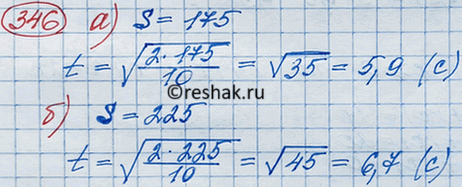 346 а) S = 175
t = √(2·175/10) = √35 = 5,9 (с)
©reshak.ru
б) S = 225
t = √(2·225/10) = √45 = 6,7 (с)